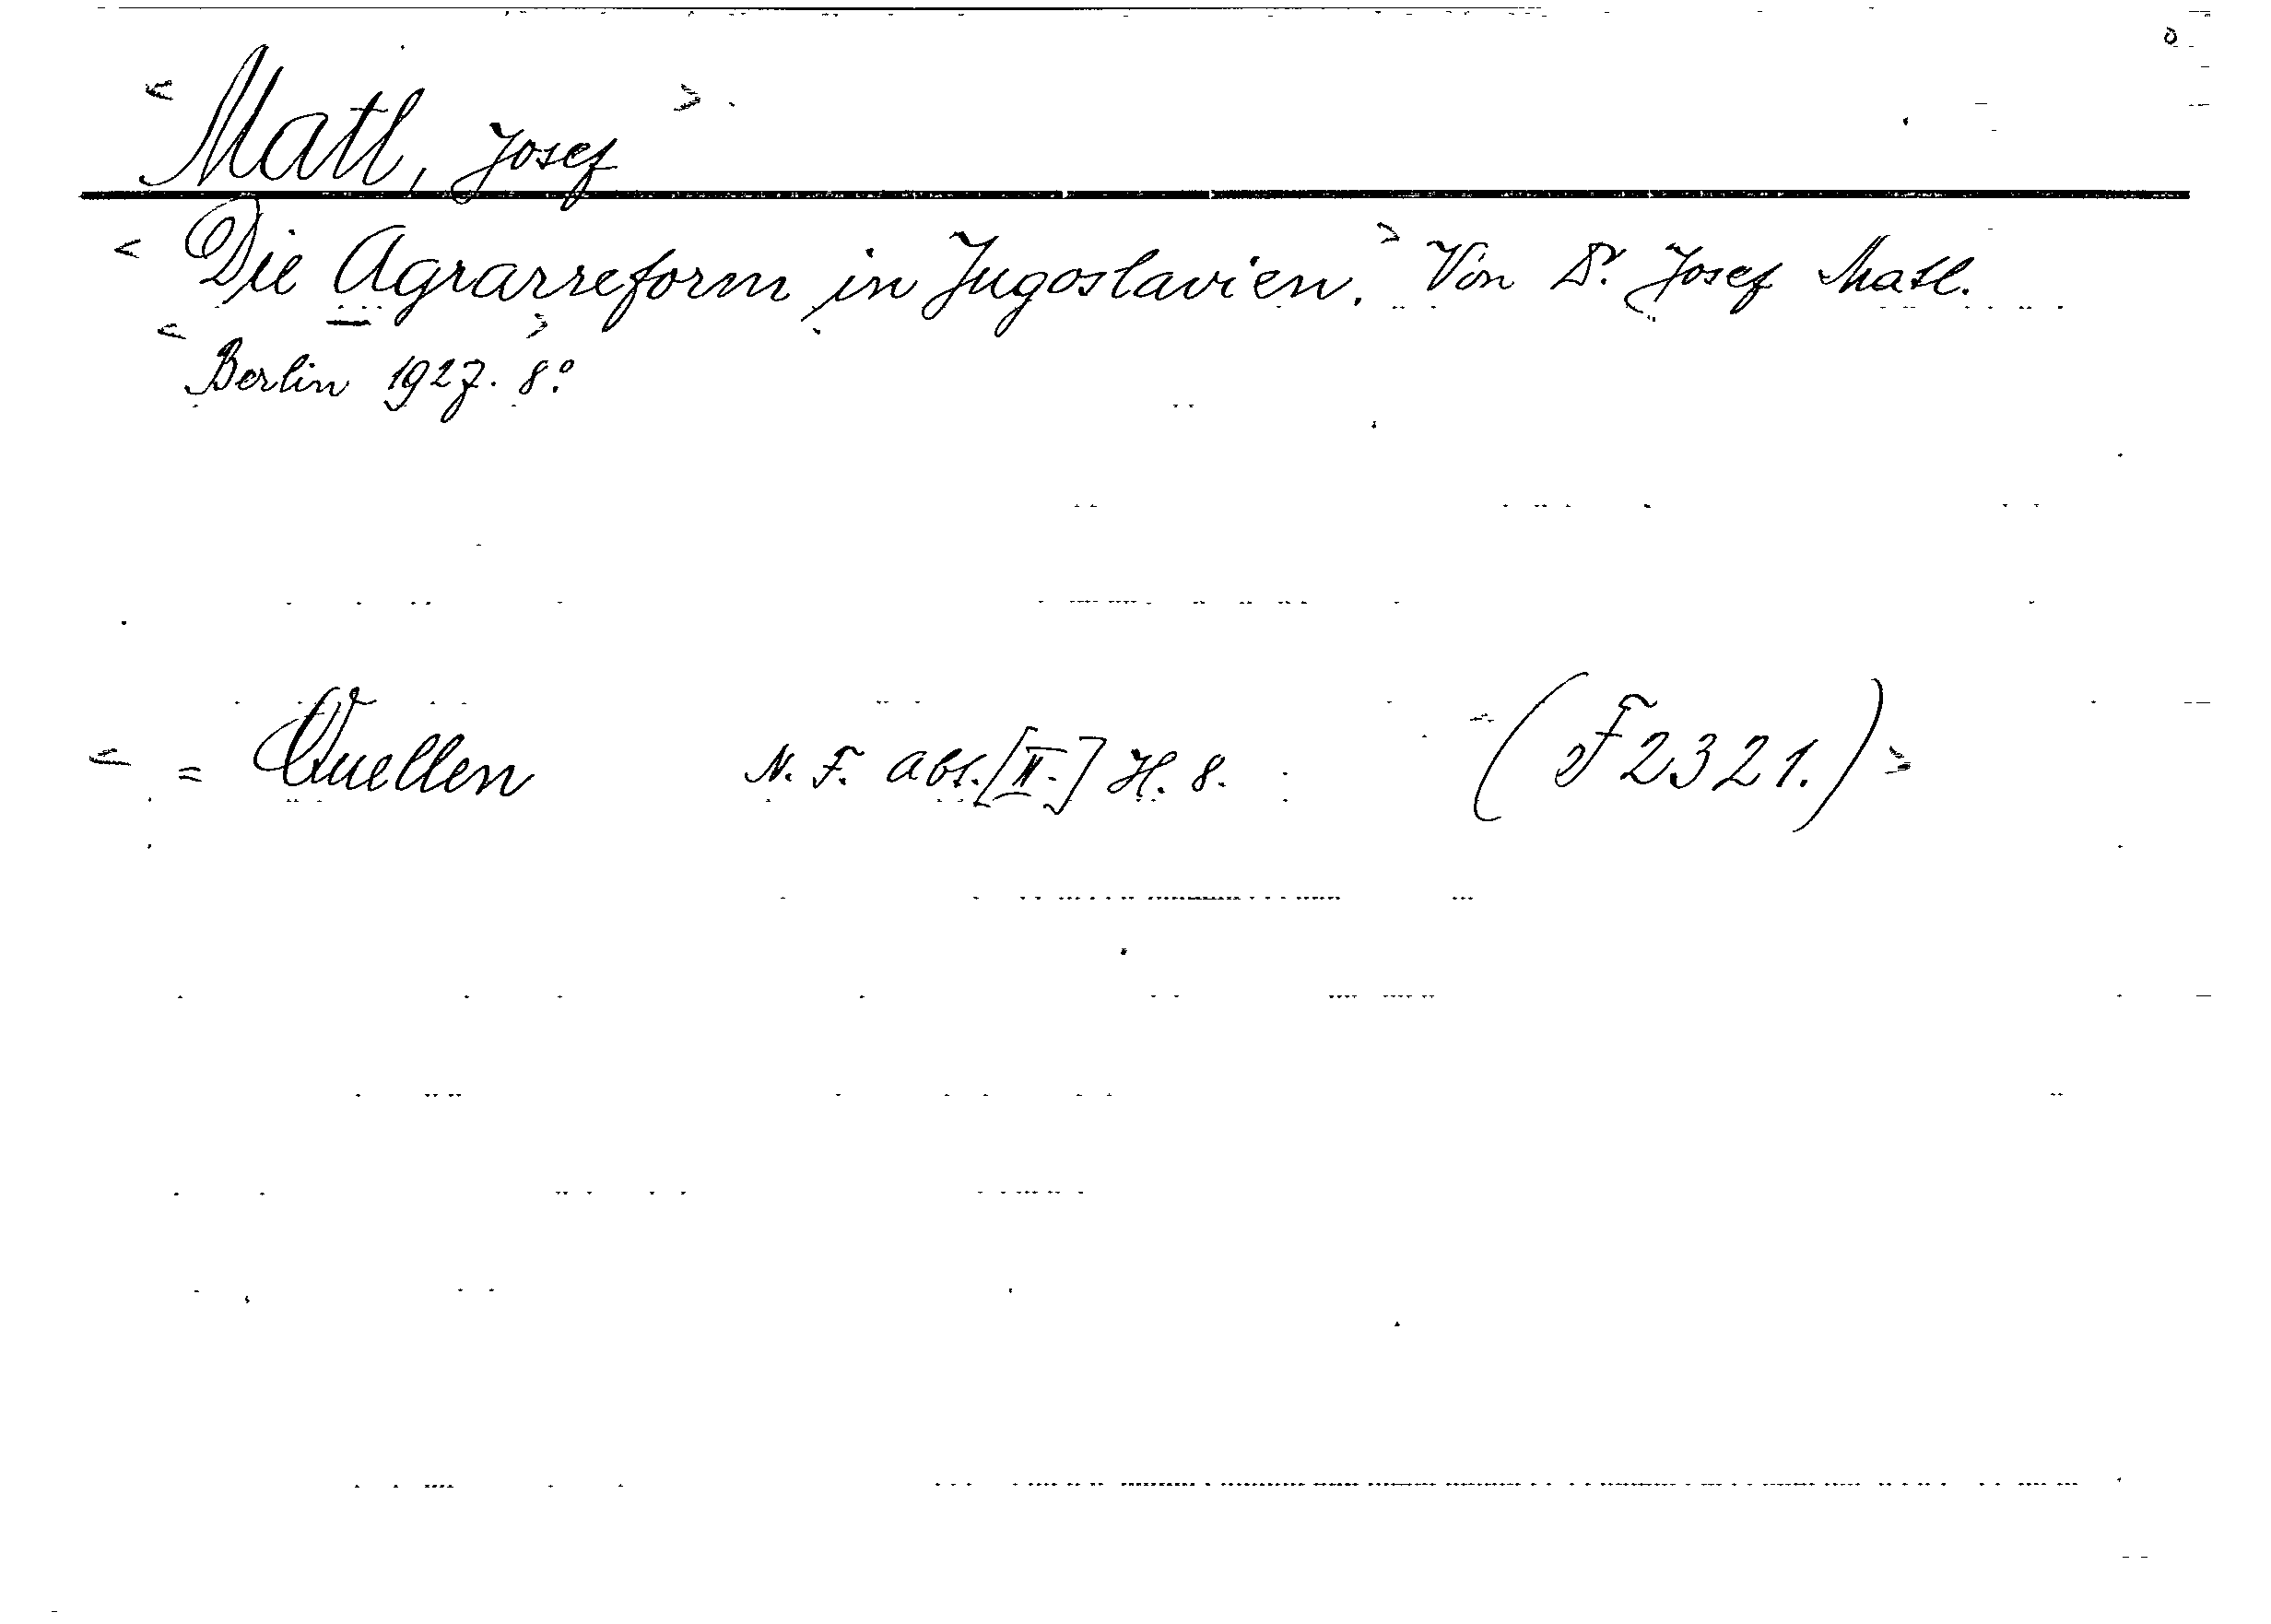 < Matl, Josef >
< Die Agrarreform in Jugoslavien. > Von Dr. Josef Matl.
< Berlin 1927. > 8°.
< = Quellen N. F. Abt. [II.] H. 8. (F 2321.) >